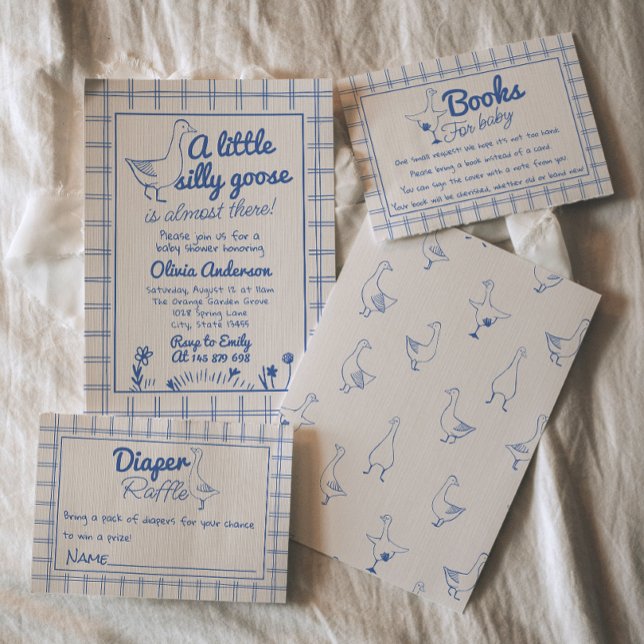 A little
silly goose
is almost there!
Please join us for a
baby shower honoring
Olivia Anderson
Saturday, August 12 at 11am
The Orange Garden Grove
1028 Spring Lane
City, State 13455
Rsvp to Emily
At 145 879 698
Books
For baby
One small request! We hope it's not too hard.
Please bring a book instead of a card.
You can sign the cover with a note from you
Your book will be cherished, whether old or band new!
Diaper
Raffle
Bring a pack of diapers for your chance
to win a prize!
Name